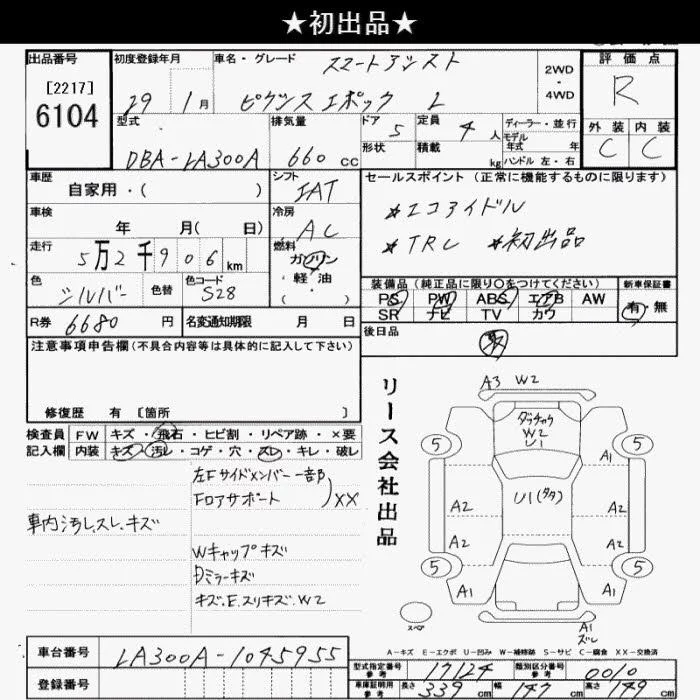 ★初出品★
出品番号
[2217]
6104
初度登録年月
29 1月
車名・グレード
スマートアシスト
ピクシス エポック L
2WD
・
4WD
評価点
R
外装 内装
C C
型式
DBA-LA300A
排気量
660 cc
ドア 5
形状
定員 4 人
積載 kg
ディーラー・並行
モデル
年式 年
ハンドル 左・右
車歴
自家用・( )
シフト
IAT
車検
年 月( 日)
冷房
AC
走行
5万2千906km
燃料
ガソリン
軽・油
( ・ )
色
シルバー
色替
色コード
S28
R券 6680 円
名変通知期限 月 日
セールスポイント (正常に機能するものに限ります)
*エコアイドル
*TRC *初出品
装備品 (純正品に限り〇をつけてください)
PS PW ABS エアB AW
SR ナビ TV カワ
新車保証書
有・無
後日品
注意事項申告欄(不具合内容等は具体的に記入して下さい)
修復歴 有 [箇所 ]
検査員
記入欄
FW キズ・飛石・ヒビ割・リペア跡・×要
内装 キズ・汚レ・コゲ・穴・スレ・キレ・破レ
車内汚レ.スレ.キズ
左Fサイドメンバー一部
Fロアサポート
)XX
Wキャップキズ
Dミラーキズ
キズ.E.スリキズ.W2
リース会社出品
A3 W2
ダッチャク
W2
U1
U1(タタ)
5 5
A1
A2 A2
A2 A2
5 5
A1 A1
スペア
A1
ズレ
A-キズ E-エクボ U-凹み W-補修跡 S-サビ C-腐食 XX-交換済
車台番号 LA300A-1045955
登録番号
型式指定番号
参考
17124
類別区分番号
参考
0010
車庫証明用
参考
長さ 339 cm 幅 147 cm 高さ 149 cm